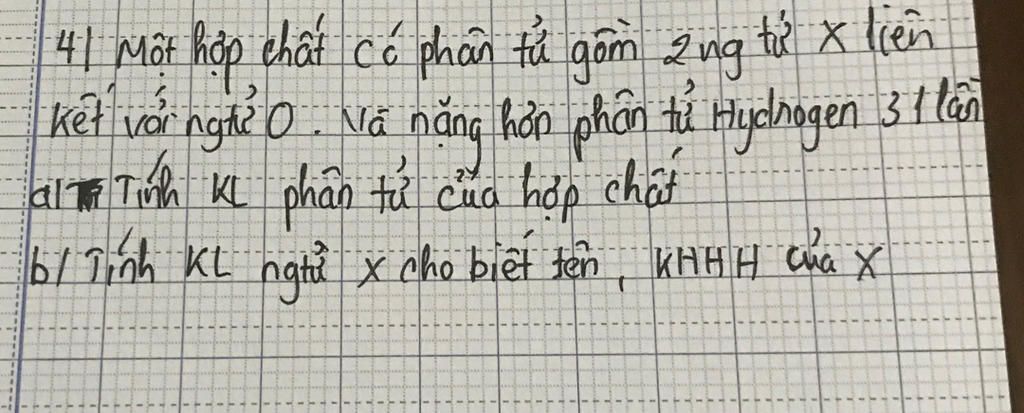 4/ Một hợp chất có phân tử gồm 2 ng tử X liên
kết với ngtử O. Và nặng hơn phân tử Hydrogen 31 lần
a/ Tính KL phân tử của hợp chất
b/ Tính KL ngtử X cho biết tên, KHHH của X